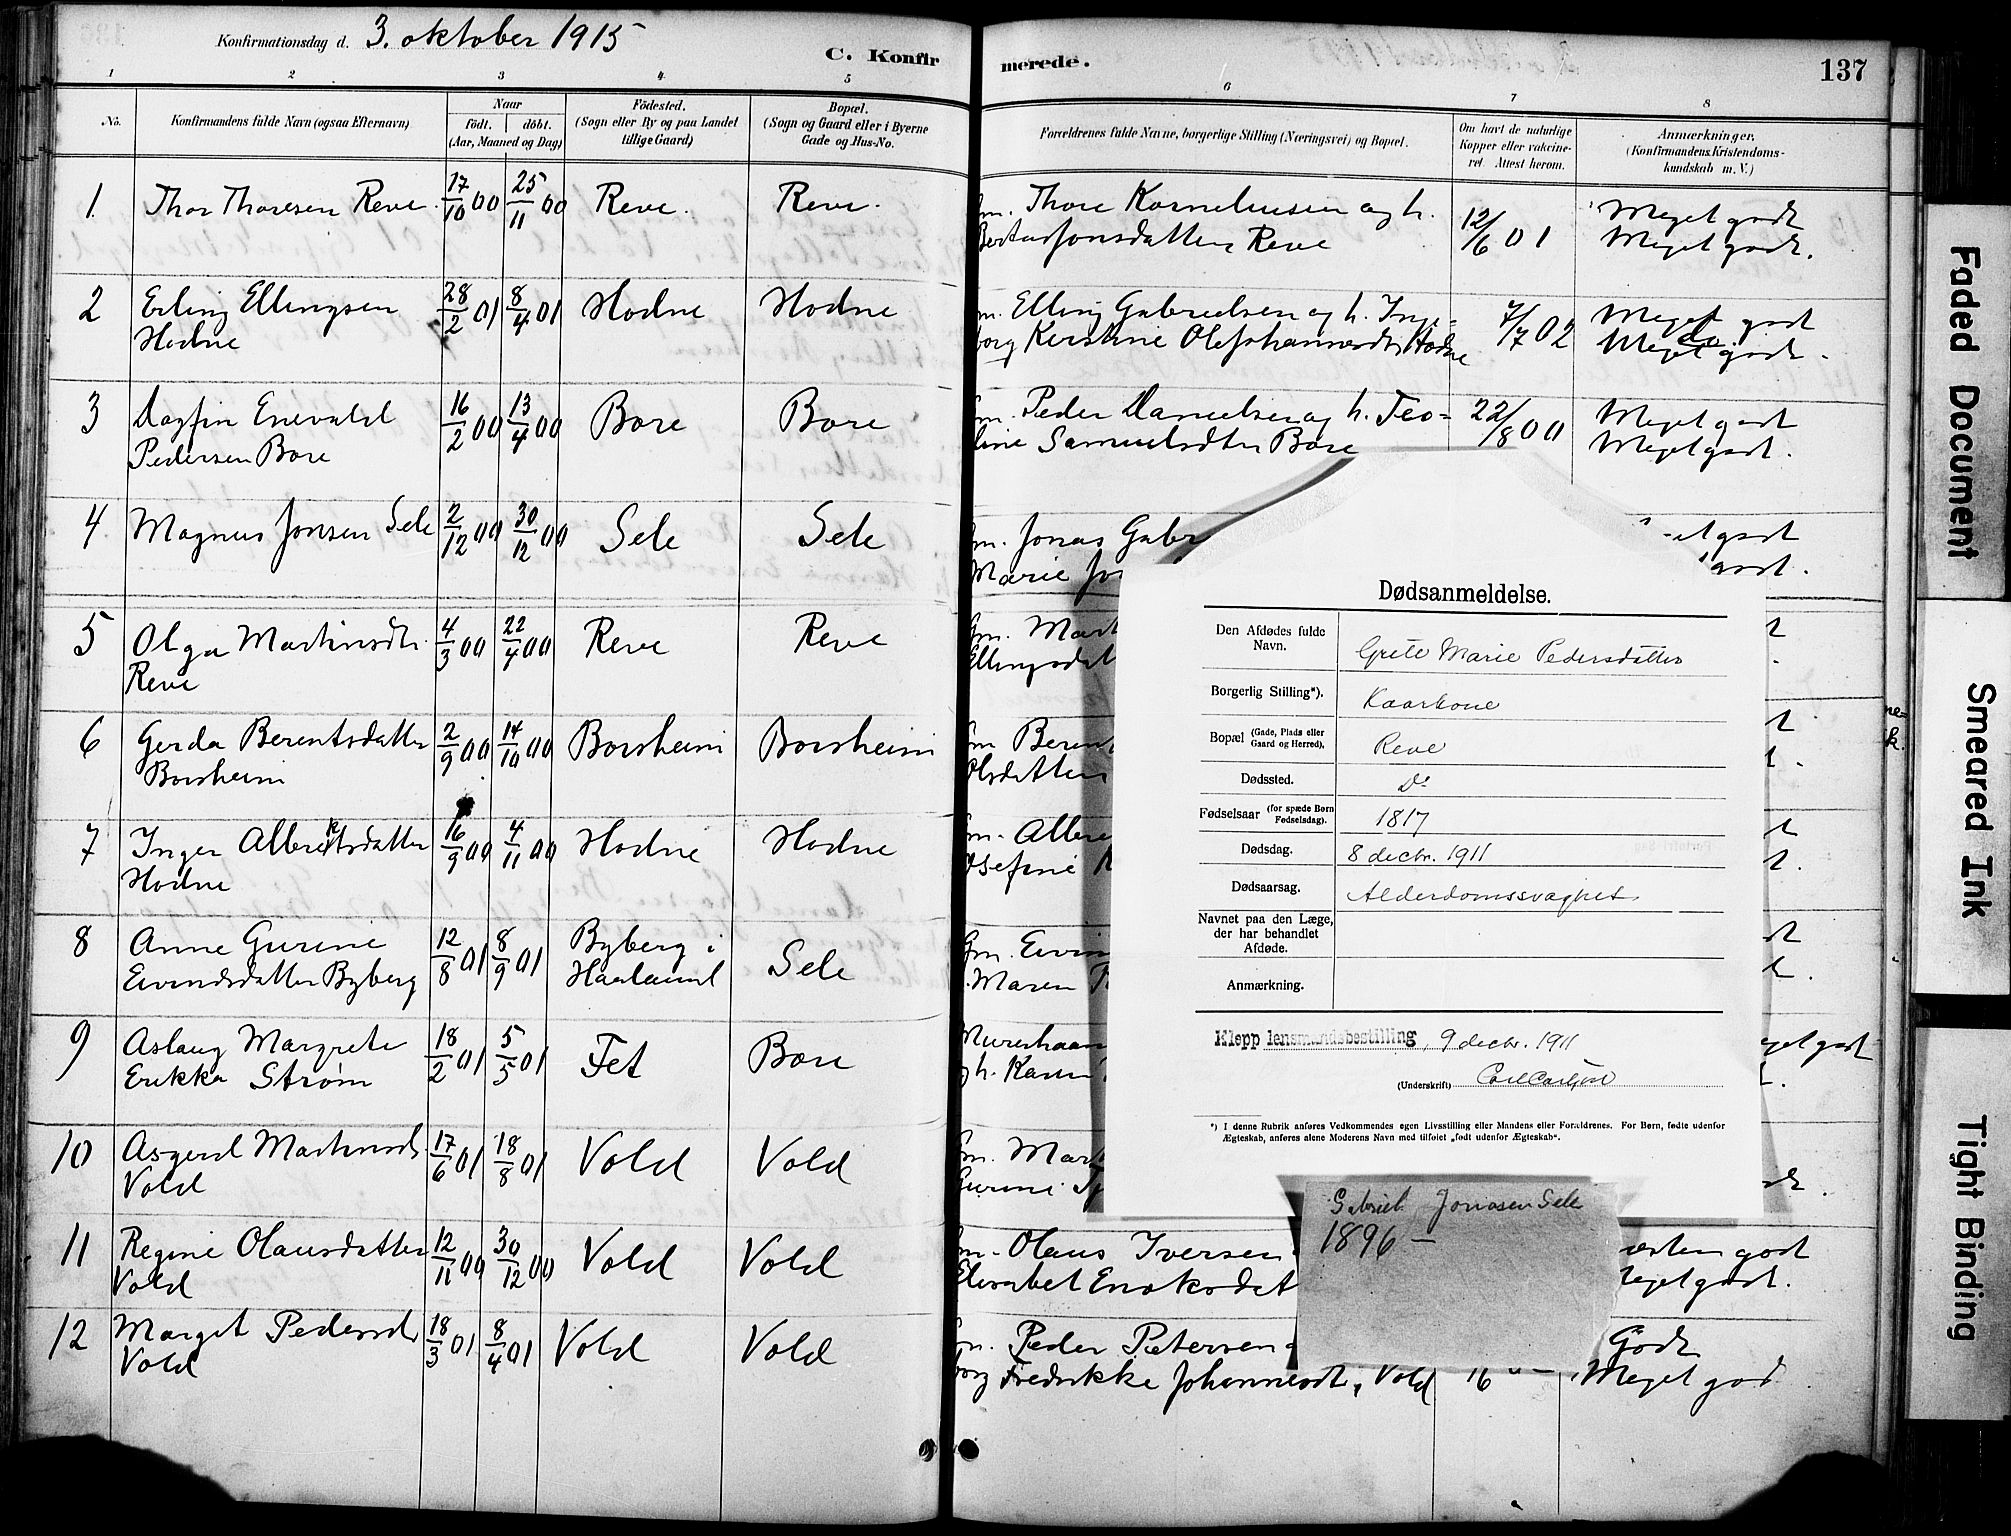 Konfirmationsdag d. 3. oktober 1915
C. Konfirmerede.
137
1 2 3 4 5 6 7 8
No.
Konfirmandens fulde Navn (ogsaa Efternavn)
Naar
födt. döbt.
(Aar, Maaned og Dag)
Födested.
(Sogn eller By og paa Landet
tillige Gaard)
Bopæl.
(Sogn og Gaard eller i Byerne
Gade og Hus-No.
Forældrenes fulde Navne, borgerlige Stilling (Næringsvei) og Bopæl.
Om havt de naturlige
Kopper eller vakcine-
ret. Attest herom.
Anmærkninger.
(Konfirmandens Kristendoms-
kundskab m. V.)
1. Thor Thoresen Reve 17/10 00 25/11 00 Reve. Reve. Gm. Thore Kornelinsen og h. 12/6 01 Meget godt
Berta Jonsdatter Reve Meget godt.
2 Erling Ellingsen 28/2 01 8/4 01 Hodne Hodne Gm. Elling Gabrielsen og h. Inge- 7/7 02 Meget godt
Hodne borg Kerstine Olefohannesdtr Hodne Meget godt.
3 Dagfin Enevald 16/2 00 13/4 00 Bore Bore Gm. Peder Danielsen og h. Teo- 22/8 00 Meget godt
Pedersen Bore line Samuelsdtr Bore Meget godt.
4 Magnus Jonsen Sele 2/12 00 30/12 00 Sele Sele Gm. Jonas Gabr et godt
Marie Jo godt.
5 Olga Martinsdtr. 4/3 00 22/4 00 Reve Reve Gm. Mart
Reve Ellingsdat
6 Gerda Berentsdatter 2/9 00 14/10 00 Borsheim Borsheim Gm Berent
Borsheim Olsdatter
7 Inger Albrektsdatter 16/9 00 4/11 00 Hodne Hodne Gm. Albre
Hodne Josefine
8 Anne Gurine 12/8 01 8/9 01 Byberg i Sele Gm. Eivin
Eivindsdatter Byberg Haaland Maren
9 Aslaug Margrete 18/2 01 5/5 01 Fet Bore Murerhaan get godt
Erikka Strøm og h. Karen
10 Asgerd Martinsd. 17/6 01 18/8 01 Vold Vold Gm. Mart
Vold Gurine
11 Regine Olausdatter 12/11 00 30/12 00 Vold Vold Gm. Olaus Iversen næsten godt
Vold Elisabet Enoksdat Meget godt.
12 Marget Pedersd. 18/3 01 8/4 01 Vold Vold Gm. Peder Petersen Godt
Vold borg Fredrikke Johannesdt, Vold 16 Meget god
Dødsanmeldelse.
Den Afdødes fulde
Navn. Grete Marie Pedersdatter
Borgerlig Stilling*). Kaarkone
Bopæl (Gade, Plads eller
Gaard og Herred). Reve
Dødssted. Do
Fødselsaar (for spæde Børn
Fødselsdag). 1817
Dødsdag. 8 decbr. 1911
Dødsaarsag. Alderdomssvaghet
Navnet paa den Læge,
der har behandlet
Afdøde.
Anmærkning.
Klepp lensmandsbestilling, 9 decbr. 1911
(Underskrift) Carl Carlsen
*) I denne Rubrik anføres Vedkommendes egen Livsstilling eller Mandens eller Forældrenes. For Børn, fødte udenfor
Ægteskab, anføres alene Moderens Navn med tilføiet „født udenfor Ægteskab“.
Gabriel Jonasen Sele
1896 —
Faded Document
Smeared Ink
Tight Binding